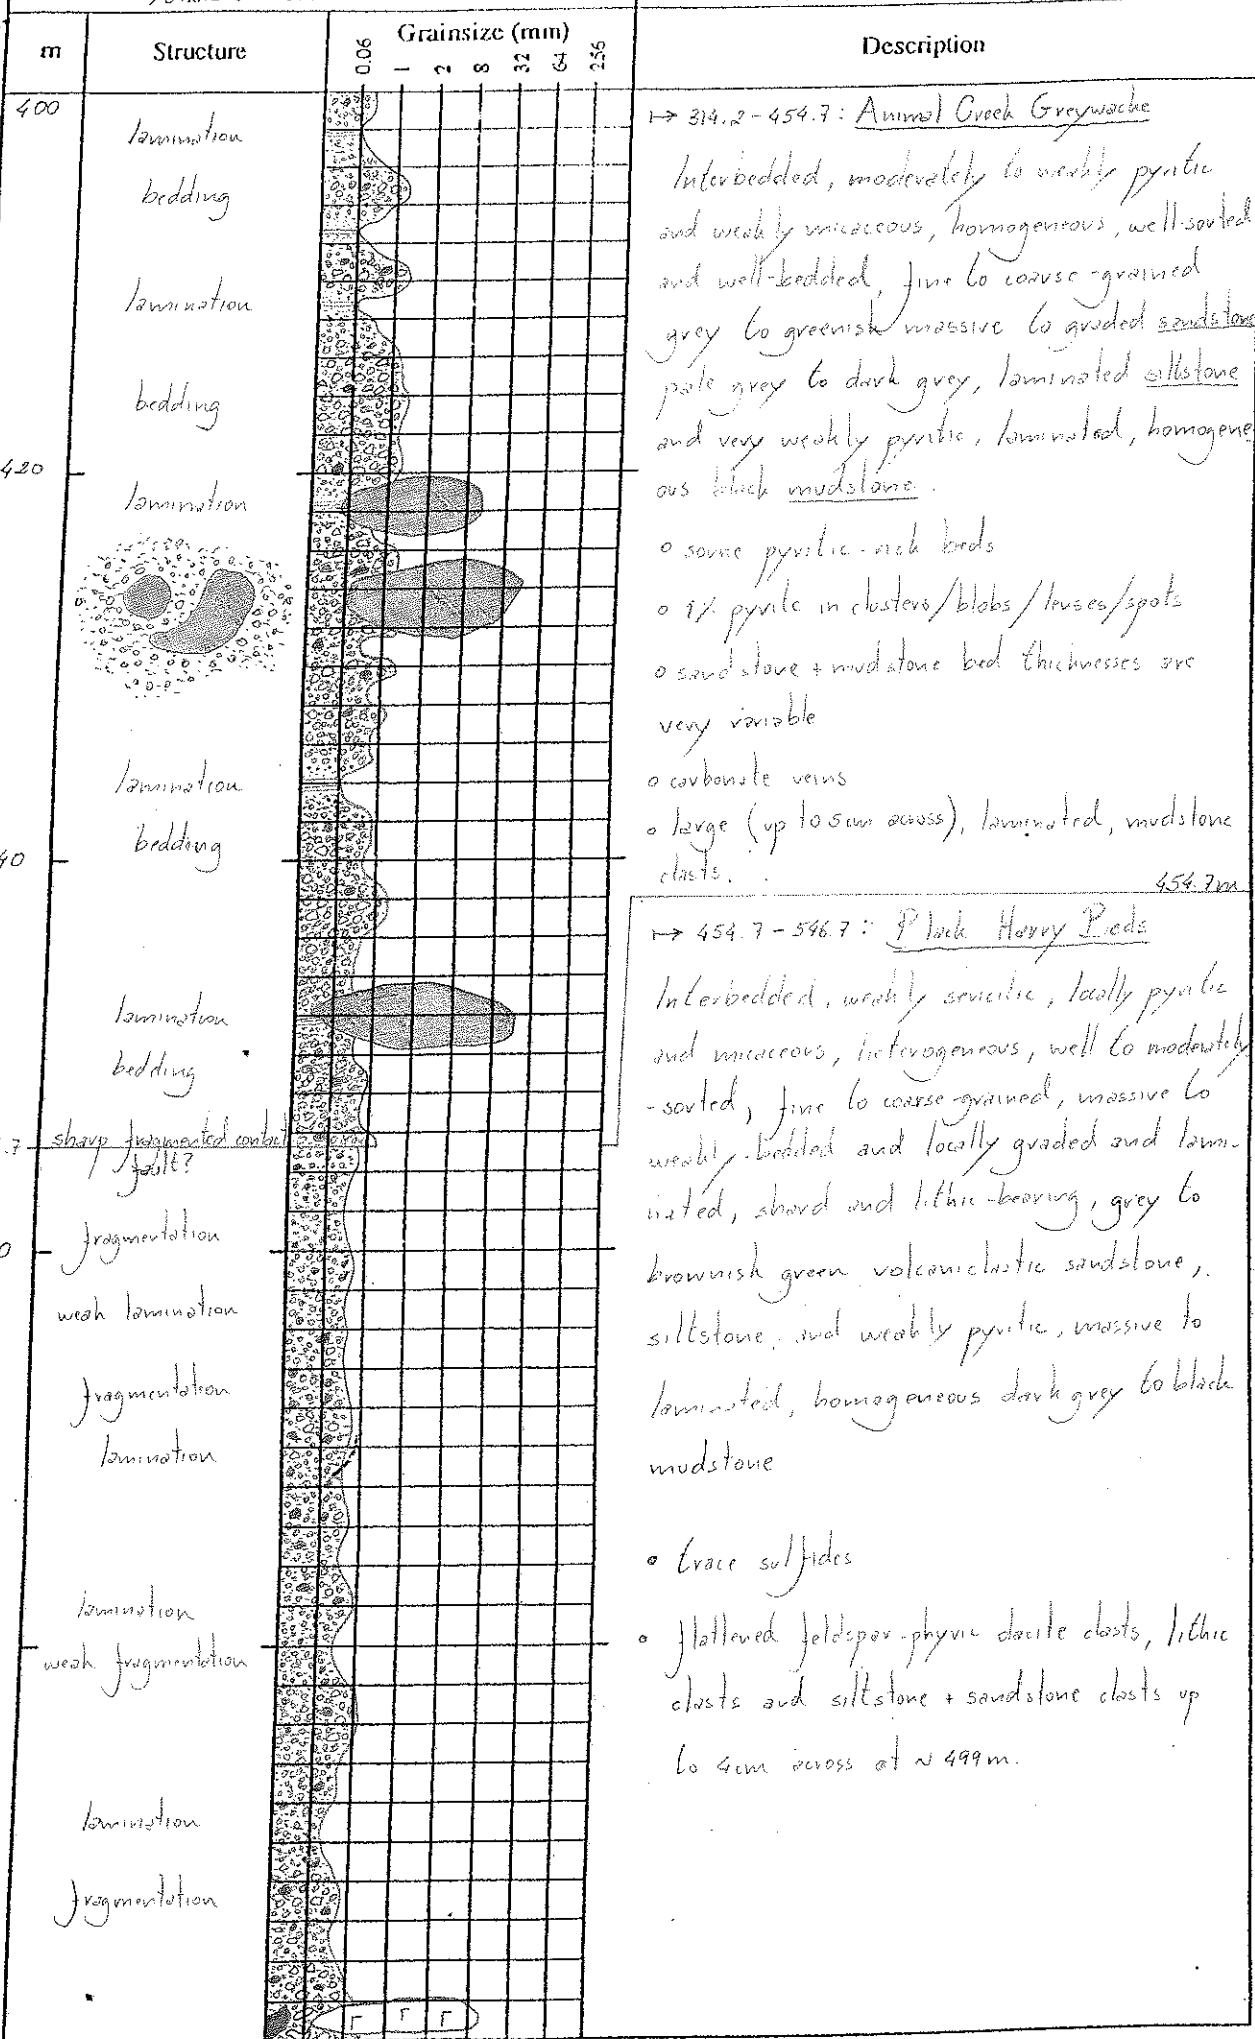 m
Structure
Grainsize (mm)
0.06
1
2
8
32
64
256
Description
400
lamination
bedding
lamination
bedding
420
lamination
lamination
bedding
40
lamination
bedding
.7
sharp fragmented contact
fault?
0
fragmentation
weak lamination
fragmentation
lamination
lamination
weak fragmentation
lamination
fragmentation
Γ Γ Γ
↦ 314.2-454.7: Animal Creek Greywacke
Interbedded, moderately to weakly pyritic
and weakly micaceous, homogeneous, well-sorted
and well-bedded, fine to coarse-grained
grey to greenish massive to graded sandstone
pale grey to dark grey, laminated siltstone
and very weakly pyritic, laminated, homogene
ous black mudstone.
o some pyritic-rich beds
o 1% pyrite in clusters/blobs/lenses/spots
o sandstone + mudstone bed thicknesses are
very variable
o carbonate veins
o large (up to 5cm across), laminated, mudstone
clasts.
454.7m
↦ 454.7-546.7: Black Harry Beds
Interbedded, weakly sericitic, locally pyritic
and micaceous, heterogeneous, well to moderately
-sorted, fine to coarse-grained, massive to
weakly-bedded and locally graded and lami-
nated, shard and lithic-bearing, grey to
brownish green volcaniclastic sandstone,
siltstone, and weakly pyritic, massive to
laminated, homogeneous dark grey to black
mudstone
o trace sulfides
o flattened feldspar-phyric dacite clasts, lithic
clasts and siltstone + sandstone clasts up
to 4cm across at ~ 499m.